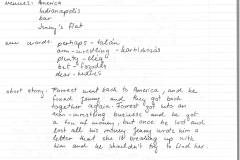 venues: America
Indianapolis
bar
Jenny's flat
new words: perhaps - talán
arm-wrestling -
plenty - elég
bet - fogadás
dear - kedves
short story: Forrest went back to America, and he
found Jenny and they got back
together again. Forrest got into an
arm-wrestling business and he got
a ton of money, but once he lost and
lost all his money. Jenny wrote him a
letter that she it breaking up with
him and he shouldn't try to find her